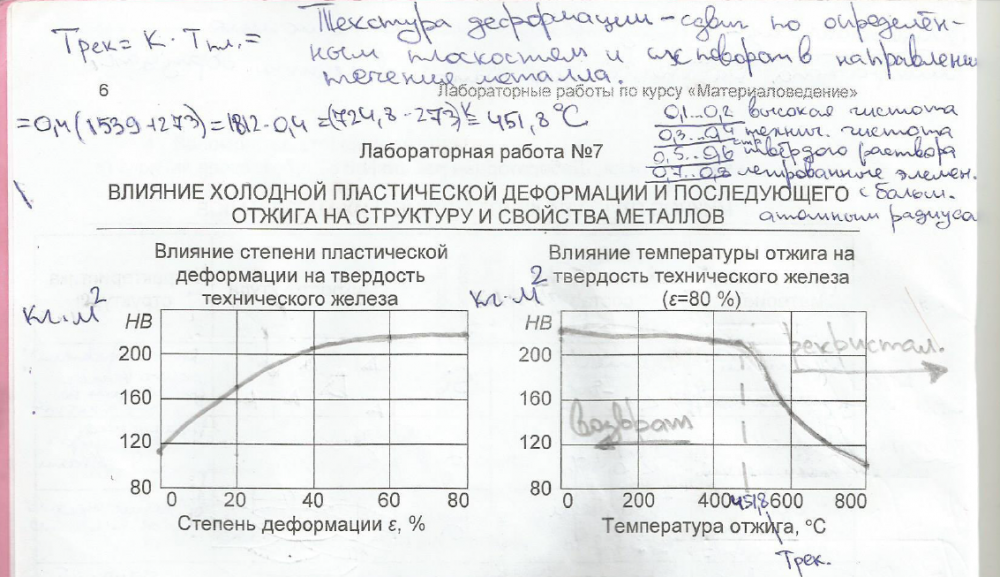 Трек= К · Тпл.=
Текстура деформации – сдвиг по определён-
ным плоскостям и их поворот в направлении
течения металла.
6
Лабораторные работы по курсу «Материаловедение»
=0,4(1539+273)=1812·0,4=(724,8-273)К= 451,8°С
0,1...0,2 высокая чистота
0,3...0,4 технич. чистота
0,5...0,6 твёрдого раствора
0,7...0,8 легированные элемен.
с больш.
атомным радиуса
Лабораторная работа №7
ВЛИЯНИЕ ХОЛОДНОЙ ПЛАСТИЧЕСКОЙ ДЕФОРМАЦИИ И ПОСЛЕДУЮЩЕГО
ОТЖИГА НА СТРУКТУРУ И СВОЙСТВА МЕТАЛЛОВ
Влияние степени пластической
деформации на твердость
технического железа
кг·м²
HB
200
160
120
80
0 20 40 60 80
Степень деформации ε, %
Влияние температуры отжига на
твердость технического железа
(ε=80 %)
кг·м²
HB
200
160
120
80
рекристал.
возврат
0 200 400 451,8 600 800
Температура отжига, °С
Трек.